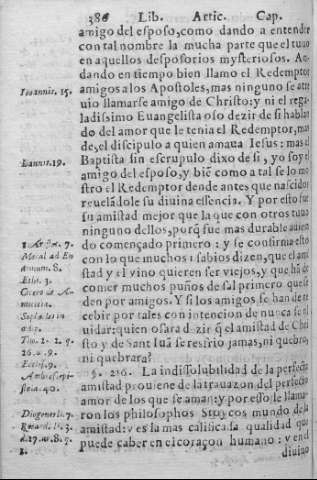 386 Lib. Artic. Cap.
amigo del esposo, como dando a entender
con tal nombre la mucha parte que el tuuo
en aquellos desposorios mysteriosos. An
dando en tiempo bien llamo el Redemptor
Ioannis. 15.
amigos a los Apostoles, mas ninguno se atre
uio llamarse amigo de Christo: y ni el rega-
ladissimo Euangelista oso dezir de si hablan
do del amor que le tenia el Redemptor, mas
de, el discipulo a quien amaua Iesus: mas el
Ioannis. 19.
Baptista sin escrupulo dixo de si, yo soy el
amigo del esposo, y biē como a tal se lo mo
stro el Redemptor dende antes que nascido
reuelādole su diuina essencia. Y por esto fue
su amistad mejor que la que con otros tuuo
ninguno dellos, porq̃ fue mas durable auien
7.
do començado primero: y se confirma esto
Moral ad
con lo que muchos sabios dizen, que el ami
8.
stad y el vino quieren ser viejos, y que hā de
Ethi. 3.
Cicero de A-
comer muchos puños de sal primero que se
micitia.
den por amigos. Y si los amigos se han de
Sophocles in
cebir por tales con intencion de nunca se ol
uidar: quien osara dezir q̃ el amistad de Chri
2. 9.
sto y de Sant Iuā se resfrio jamas, ni quebro,
26. 9.
ni quebrara?
9.
§. 216. La indissolubilidad de la perfecta
40.
amistad prouiene de la trauazon del perfecto
amor de los que se aman: y por esso le llama-
Diogenes li. 7.
ron los philosophos Stoycos mundo de la
3.
amistad: y es la mas calificada qualidad que
d. 27. 8. 9.
puede caber en coraçon humano: y en el
2.
diuino